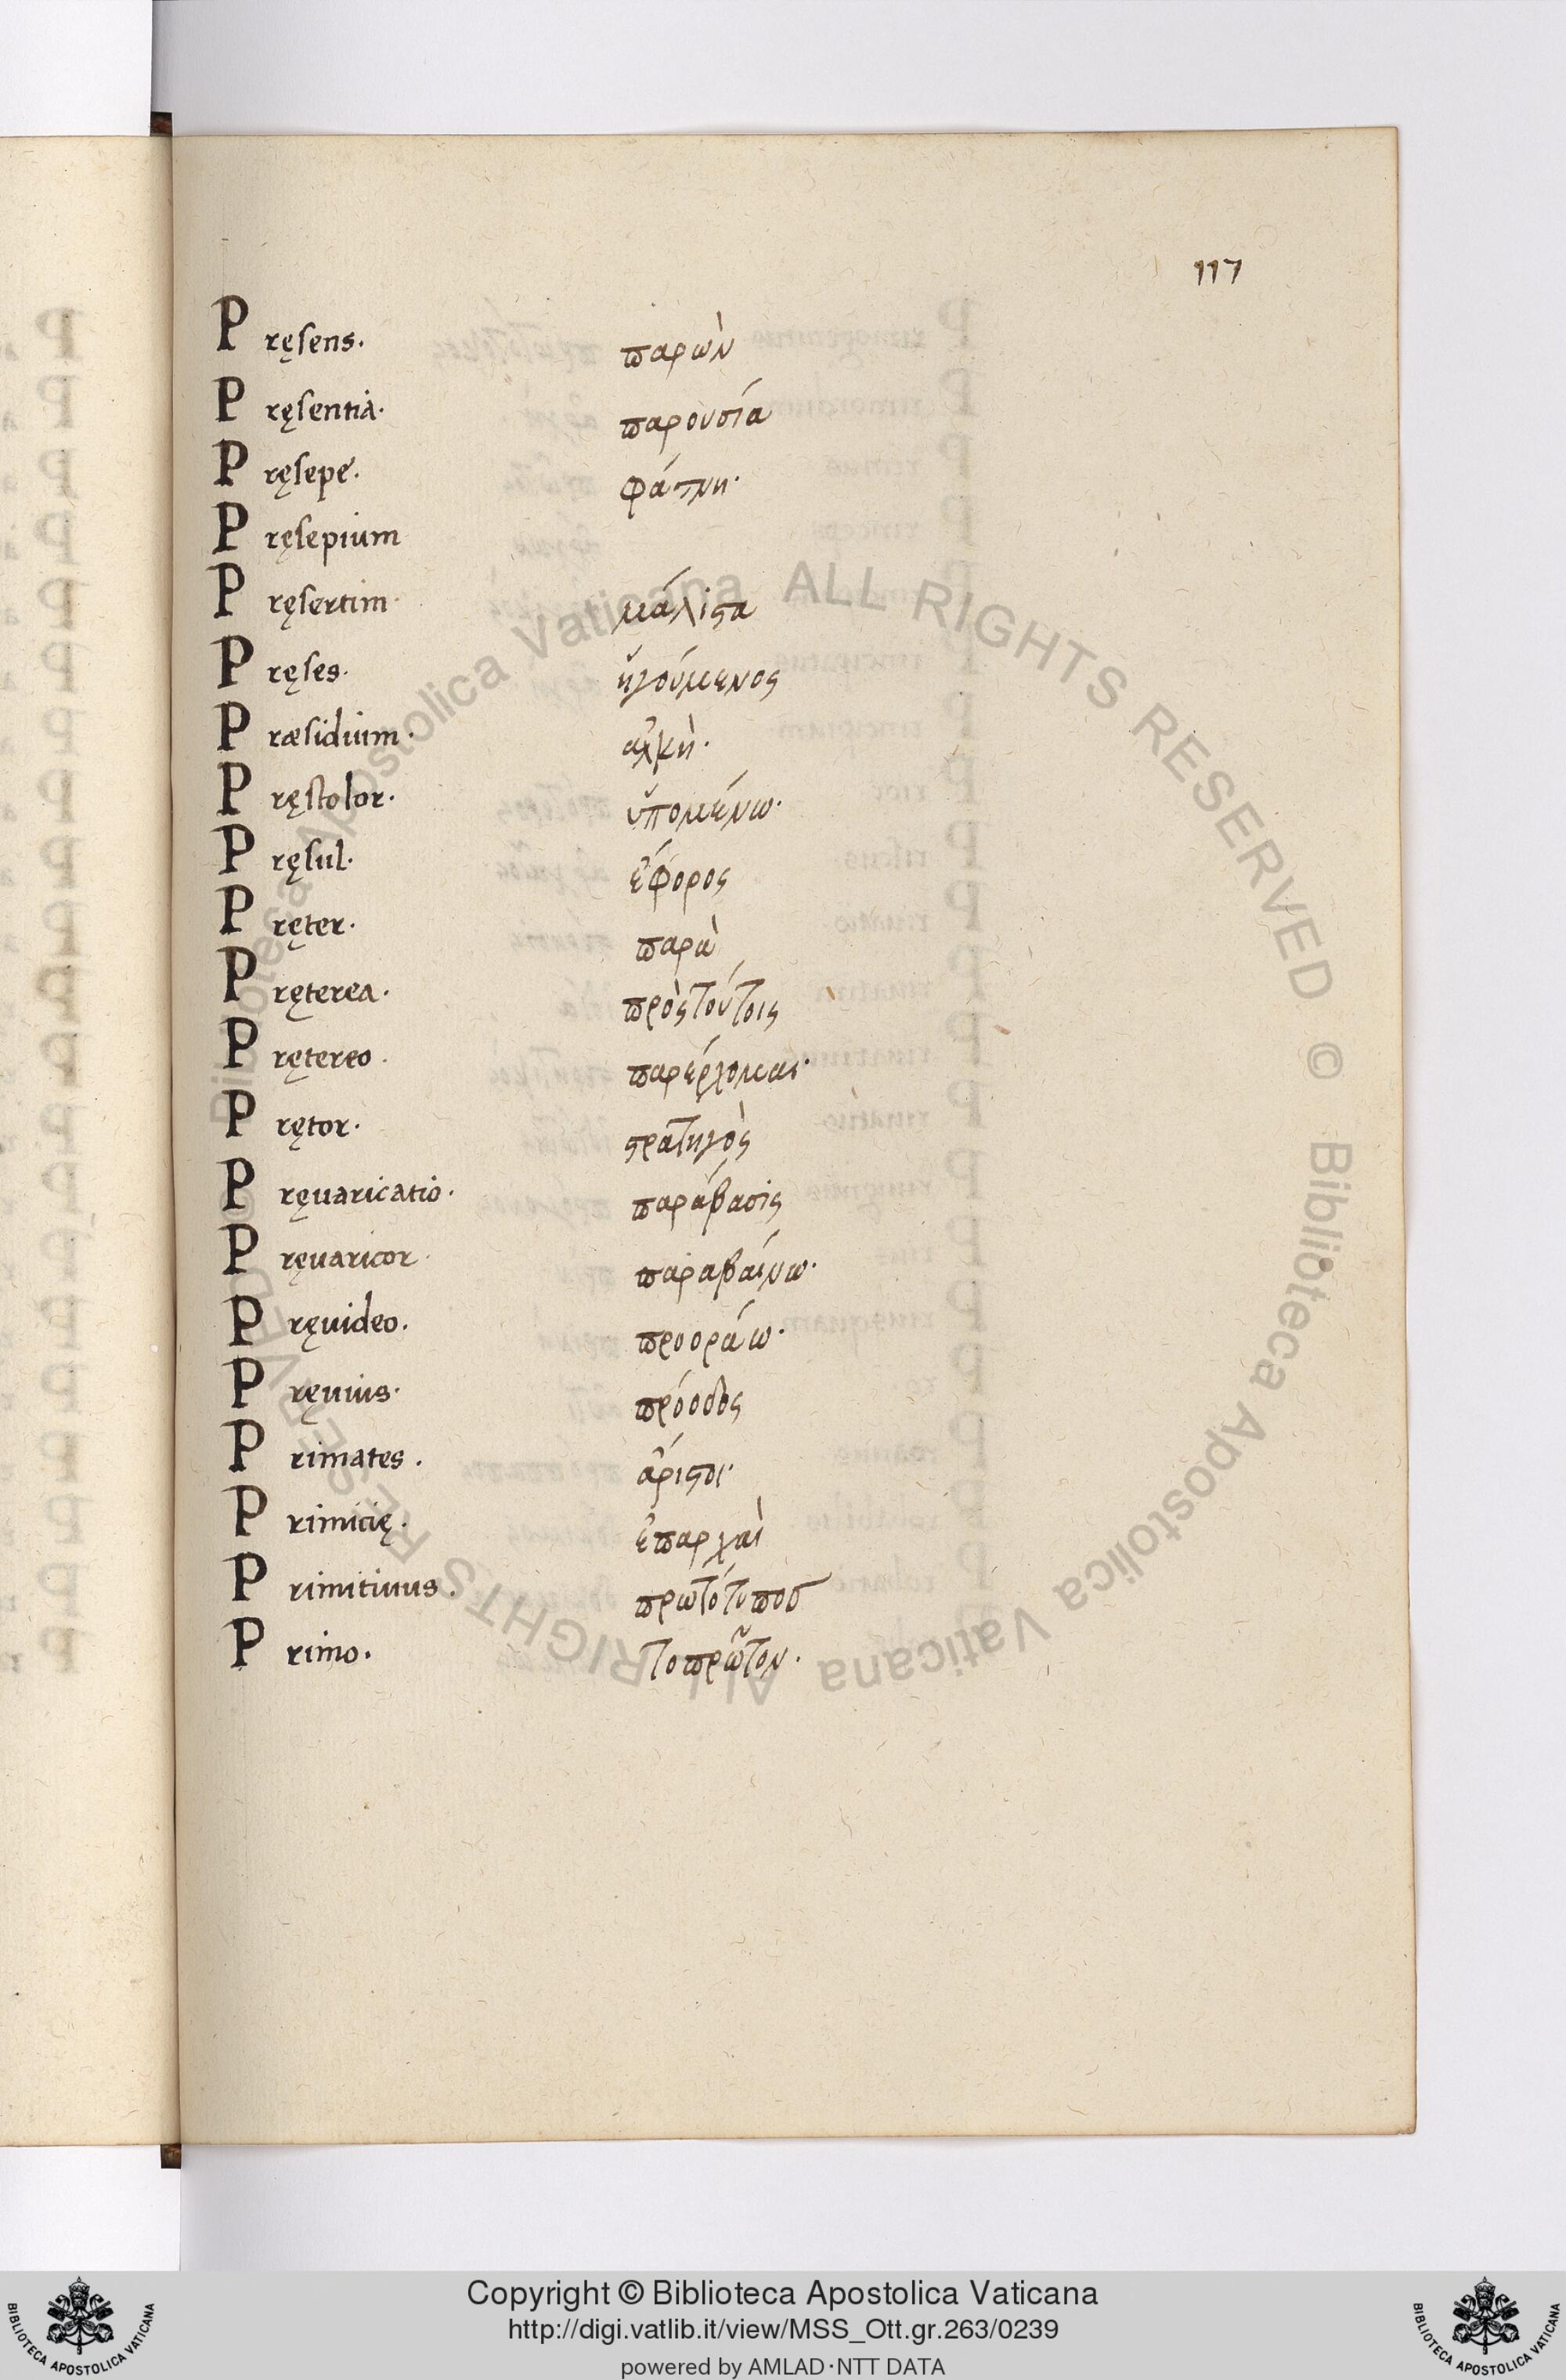 117
Pręsens. παρὼν
Pręsentia. παρουσία
Pręsepe. φάτνη.
Pręsepium
Pręsertim. μάλιϛα
Pręses. ἡγούμενος
Præsidium. ἀλκὴ.
Pręstolor. ὑπομένω.
Pręsul. ἔφορος
Pręter. παρὰ
Pręterea. πρὸς τούτοις
Prętereo. παρέρχομαι.
Prętor. ϛρατηγὸς
Pręuaricatio. παράβασις
Pręuaricor. παραβαίνω.
Pręuideo. προοράω.
Pręuius. πρόοδος
Primates. ἄριϛοι.
Primicię. ἐπαρχαὶ
Primitiuus. πρωτότυπος
Primo. τοπρῶτον.
Biblioteca Apostolica Vaticana ALL RIGHTS RESERVED © Biblioteca Apostolica Vaticana ALL RIGHTS RESERVED ©
Copyright © Biblioteca Apostolica Vaticana
http://digi.vatlib.it/view/MSS_Ott.gr.263/0239
powered by AMLAD·NTT DATA
BIBLIOTECA APOSTOLICA VATICANA
BIBLIOTECA APOSTOLICA VATICANA